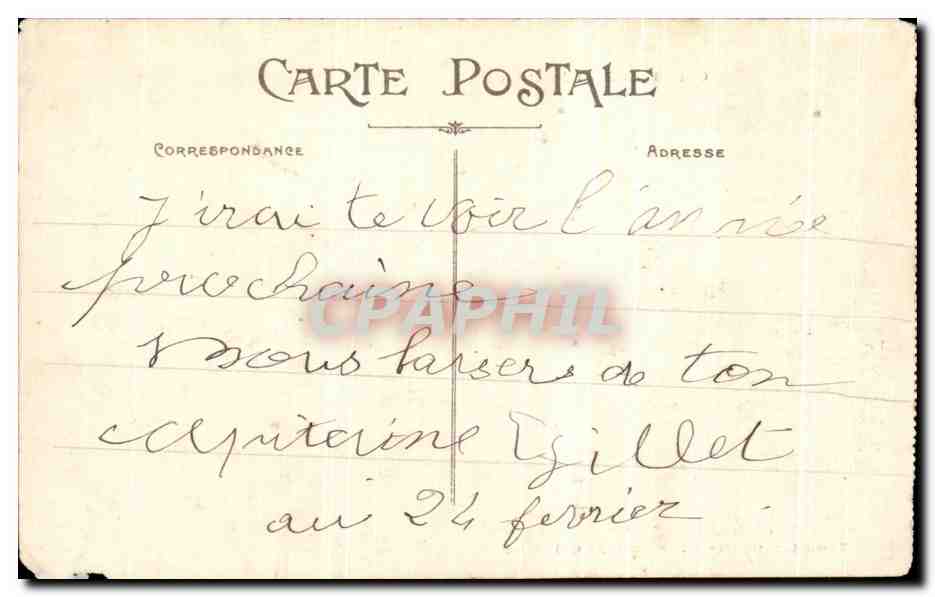 CARTE POSTALE
CORRESPONDANCE
ADRESSE
J'irai te voir l'année
prochaine
CPAPHIL
baisers de ton
capitaine Gillet
au 24 fevrier